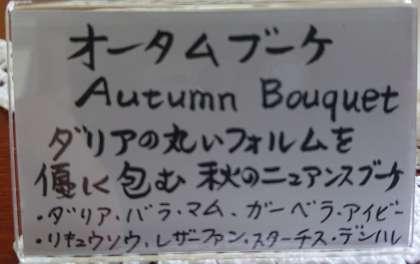 オータムブーケ
Autumn Bouquet
ダリアの丸いフォルムを
優しく包む 秋のニュアンスブーケ
・ダリア・バラ・マム、ガーベラ・アイビー
・リキュウソウ、レザーファン・スターチス・デンハレ